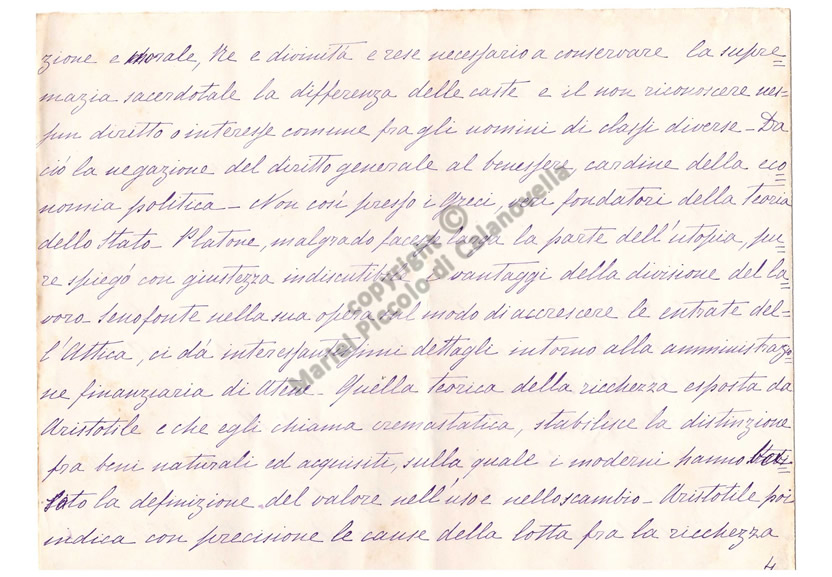 zione e morale, Re e divinitá e rese necessario a conservare la supre=
mazia sacerdotale la differenza delle caste e il non riconoscere nes=
sun diretto o interesse comune fra gli uomini di classi diverse - Da
ció la negazione del diretto generale al benessere, cardine della eco=
nomia politica - Non cosi presso i Greci, veri fondatori della teoria
dello Stato - Platone, malgrado facesse larga la parte dell'utopia, pu=
re spiegó con giustezza indiscutibile i vantaggi della divisione del la=
voro - Senofonte nella sua opera sul modo di accrescere le entrate del=
l'Attica, ci dá interessantissimi dettagli intorno alla amministrazio
ne finanziaria di Atene - Quella teorica della ricchezza esposta da
Aristotile e che egli chiama cremastatica, stabilisce la distinzione
fra beni naturali ed acquisiti, sulla quale i moderni hanno
la definizione del valore nell'uso e nello scambio - Aristotile poi
indica con precisione le cause della lotta fra la ricchezza
4
copyright ©
Mariel Piccolo di Calanovella